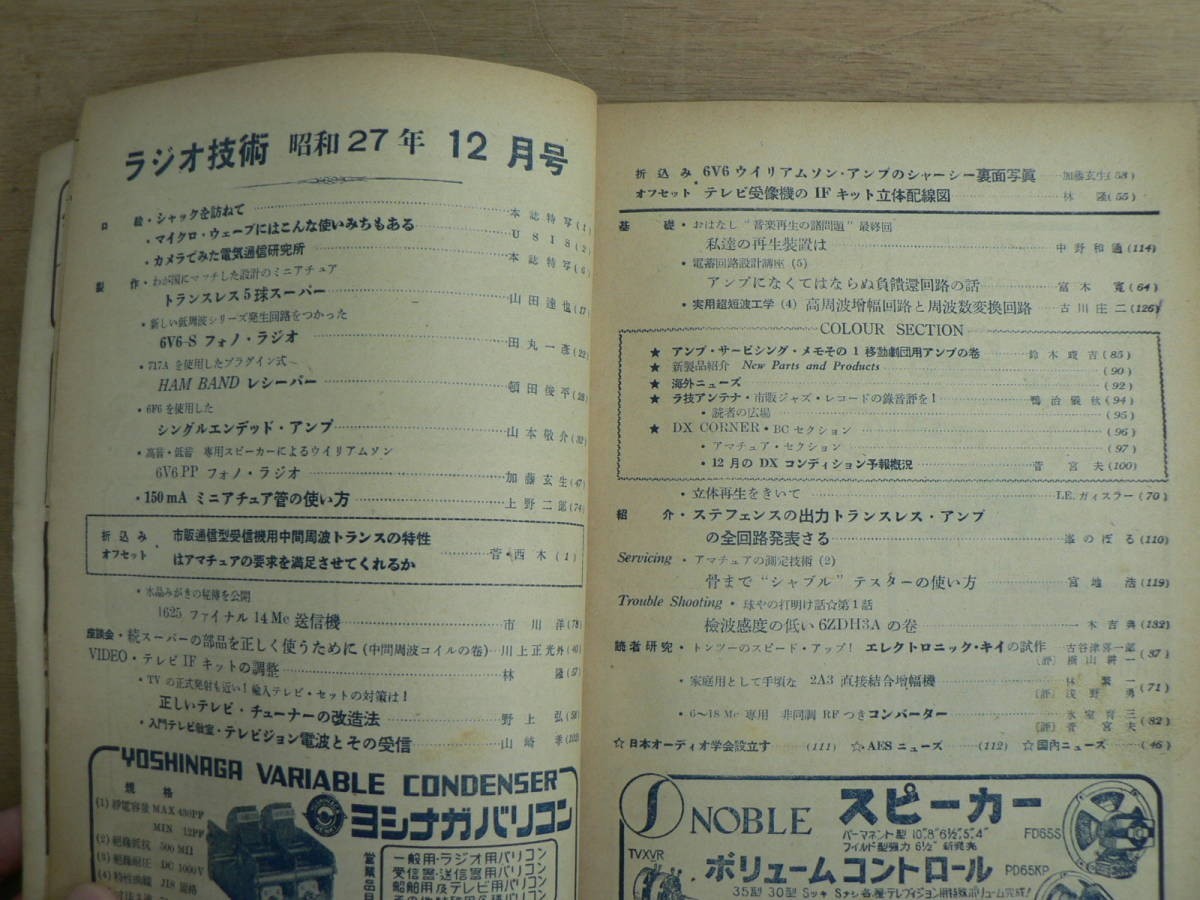 ラジオ技術 昭和27年 12月号
口絵・シャックを訪ねて 本誌特写(1)
・マイクロ・ウェーブにはこんな使いみちもある USIS(2)
・カメラでみた電気通信研究所 本誌特写(6)
製作・わが国にマッチした設計のミニアチュア
トランスレス5球スーパー 山田達也(17)
・新しい低周波シリーズ発生回路をつかった
6V6-S フォノ・ラジオ 田丸一彦(22)
・717A を使用したプラグイン式
HAM BAND レシーバー 頓田俊平(28)
・6F6 を使用した
シングルエンデッド・アンプ 山本敬介(32)
・高音・低音 専用スピーカーによるウイリアムソン
6V6PP フォノ・ラジオ 加藤玄生(47)
・150mA ミニアチュア管の使い方 上野二郎(74)
折込み オフセット・市販通信型受信機用中間周波トランスの特性
はアマチュアの要求を満足させてくれるか 菅・西木(1)
・水晶みがきの秘傳を公開
1625 ファイナル 14Mc 送信機 市川洋(78)
座談会・続スーパーの部品を正しく使うために(中間周波コイルの巻) 川上正光外(40)
VIDEO・テレビ IF キットの調整 林隆(57)
・TV の正式発射も近い!輸入テレビ・セットの対策は!
正しいテレビ・チューナーの改造法 野上弘(58)
・入門テレビ教室・テレビジョン電波とその受信 山崎孝(103)
YOSHINAGA VARIABLE CONDENSER
ヨシナガバリコン
規格
(1) 靜電容量 MAX 430PF
MIN 12PF
(2) 絶縁抵抗 500MΩ
(3) 絶縁耐圧 DC 1000V
(4) 特性曲線 JIS 規格
営業品目
一般用・ラジオ用バリコン
受信器・送信器用バリコン
船舶用及テレビ用バリコン
折込み 6V6 ウイリアムソン・アンプのシャーシー裏面写眞 加藤玄生(53)
オフセット・テレビ受像機の IF キット立体配線図 林隆(55)
基礎・おはなし “音楽再生の諸問題” 最終回
私達の再生装置は 中野和通(114)
・電蓄回路設計講座(5)
アンプになくてはならぬ負饋還回路の話 富木寛(64)
・実用超短波工学(4) 高周波増幅回路と周波数変換回路 古川庄二(126)
COLOUR SECTION
★ アンプ・サービシング・メモその1 移動劇団用アンプの巻 鈴木峻吉(85)
★ 新製品紹介 New Parts and Products (90)
★ 海外ニューズ (92)
★ ラ技アンテナ・市販ジャズ・レコードの錄音評を! 鴨治儀秋(94)
・読者の広場 (95)
★ DX CORNER・BC セクション (96)
・アマチュア・セクション (97)
・12月の DX コンディション予報概況 菅宮夫(100)
・立体再生をきいて I.E. ガイスラー(70)
紹介・ステフェンスの出力トランスレス・アンプ
の全回路発表さる 峯のぼる(110)
Servicing・アマチュアの測定技術(2)
骨まで “シャブル” テスターの使い方 宮地浩(119)
Trouble Shooting・球やの打明け話☆第1話
檢波感度の低い 6ZDH3A の巻 一木吉典(132)
読者研究・トンツーのスピード・アップ! エレクトロニック・キイの試作 古谷津喜一郎 〔評〕横山耕一 (37)
・家庭用として手頃な 2A3 直接結合増幅機 林繁一 〔評〕浅野勇 (71)
・6〜18Mc 専用 非同調 RF つきコンバーター 氷室育三 〔評〕菅宮夫 (82)
☆日本オーディオ学会設立す (111) ☆AES ニューズ (112) ☆国内ニューズ (46)
NOBLE スピーカー
パーマネント型 10" 8" 6½" 5" 4"
フィルド型強力 6½" 新発売
FD65S
TVXVR
ボリュームコントロール
PD65KP